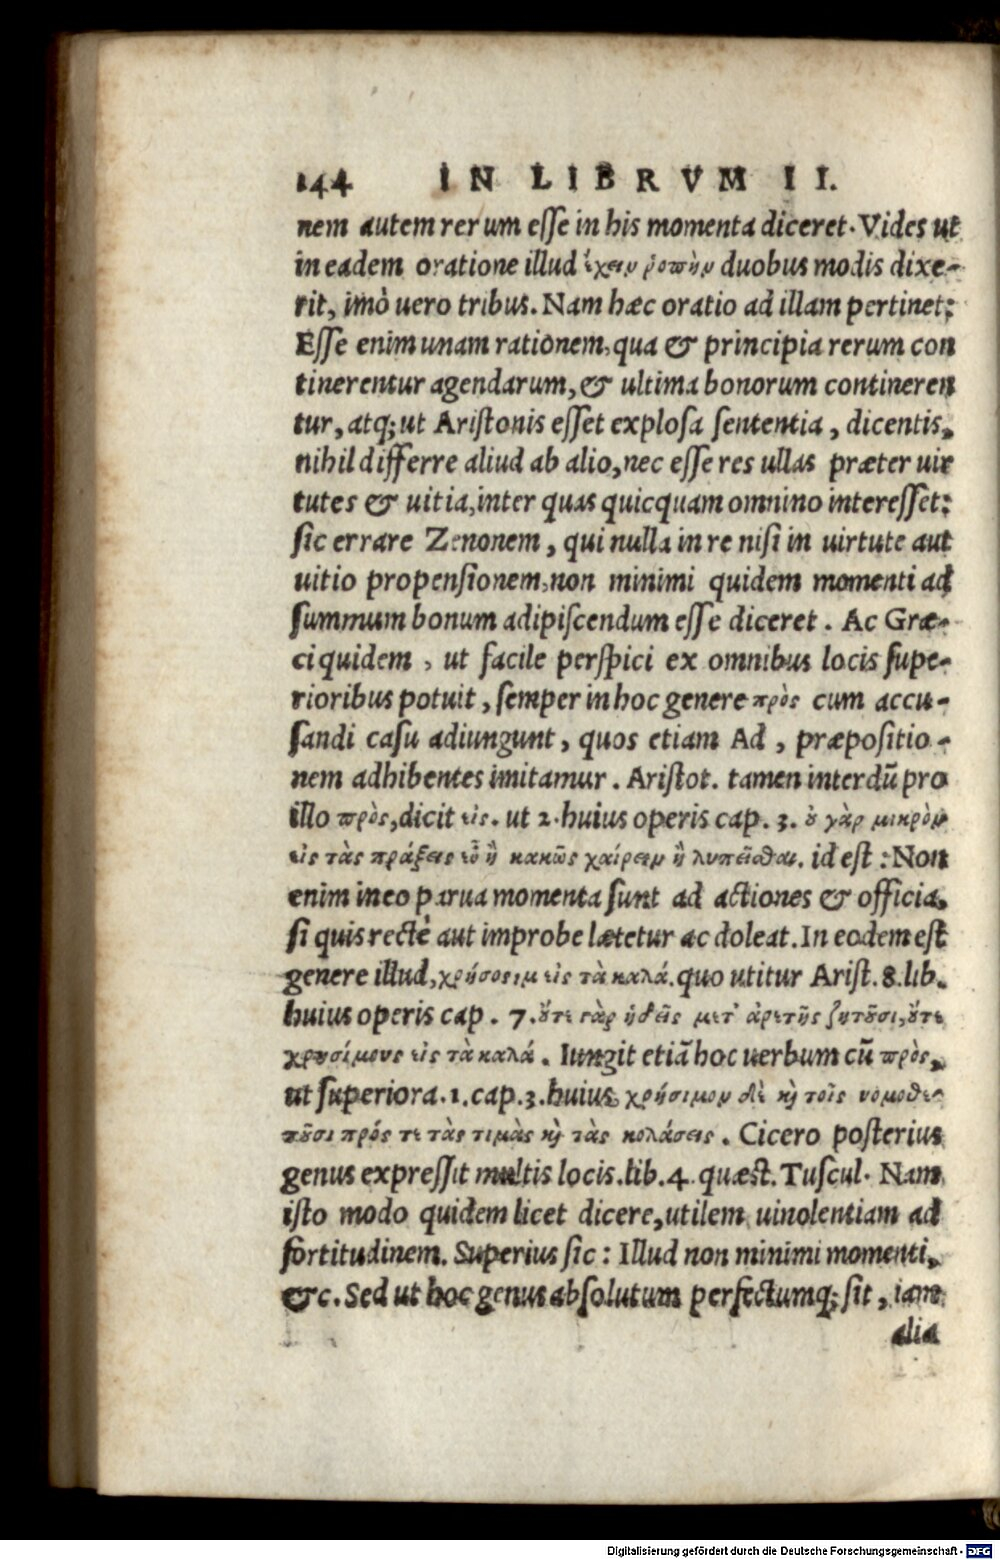 144 IN LIBRVM II.
nem autem rerum esse in his momenta diceret. Vides ut
in eadem oratione illud ἔχειν ῥοπὴν duobus modis dixe-
rit, imò uero tribus. Nam hæc oratio ad illam pertinet:
Esse enim unam rationem, qua & principia rerum con
tinerentur agendarum, & ultima bonorum contineren
tur, atq; ut Aristonis esset explosa sententia, dicentis,
nihil differre aliud ab alio, nec esse res ullas præter uir
tutes & uitia, inter quas quicquam omnino interesset:
sic errare Zenonem, qui nulla in re nisi in uirtute aut
uitio propensionem, non minimi quidem momenti ad
summum bonum adipiscendum esse diceret. Ac Græ-
ci quidem, ut facile perspici ex omnibus locis supe-
rioribus potuit, semper in hoc genere πρὸς cum accu-
sandi casu adiungunt, quos etiam Ad, præpositio-
nem adhibentes imitamur. Aristot. tamen interdũ pro
illo πρὸς, dicit εἰς. ut 2. huius operis cap. 3. ὀ γὰρ μικρὸν
εἰς τὰς πράξεις εὖ ἢ κακῶς χαίρειν ἢ λυπεῖσθαι. id est: Non
enim in eo parua momenta sunt ad actiones & officia,
si quis rectè aut improbe lætetur ac doleat. In eodem est
genere illud, χρήσοιμ εἰς τὰ καλά. quo utitur Arist. 8. lib.
huius operis cap. 7. ὄτε γὰρ ἡδεῖς μετ᾽ ἀρετῆς ζητοῦσι, ὄτε
χρησίμους εἰς τὰ καλά. Iungit etiã hoc uerbum cũ πρὸς,
ut superiora. 1. cap. 3. huius, χρήσιμον δὲ κὴ τοῖς νομοθε-
τοῦσι πρός τε τὰς τιμὰς κὴ τὰς κολάσεις. Cicero posterius
genus expressit multis locis. lib. 4. quæst. Tuscul. Nam
isto modo quidem licet dicere, utilem uinolentiam ad
fortitudinem. Superius sic: Illud non minimi momenti,
&c. Sed ut hoc genus absolutum perfectumq; sit, iam
alia
Digitalisierung gefördert durch die Deutsche Forschungsgemeinschaft - DFG